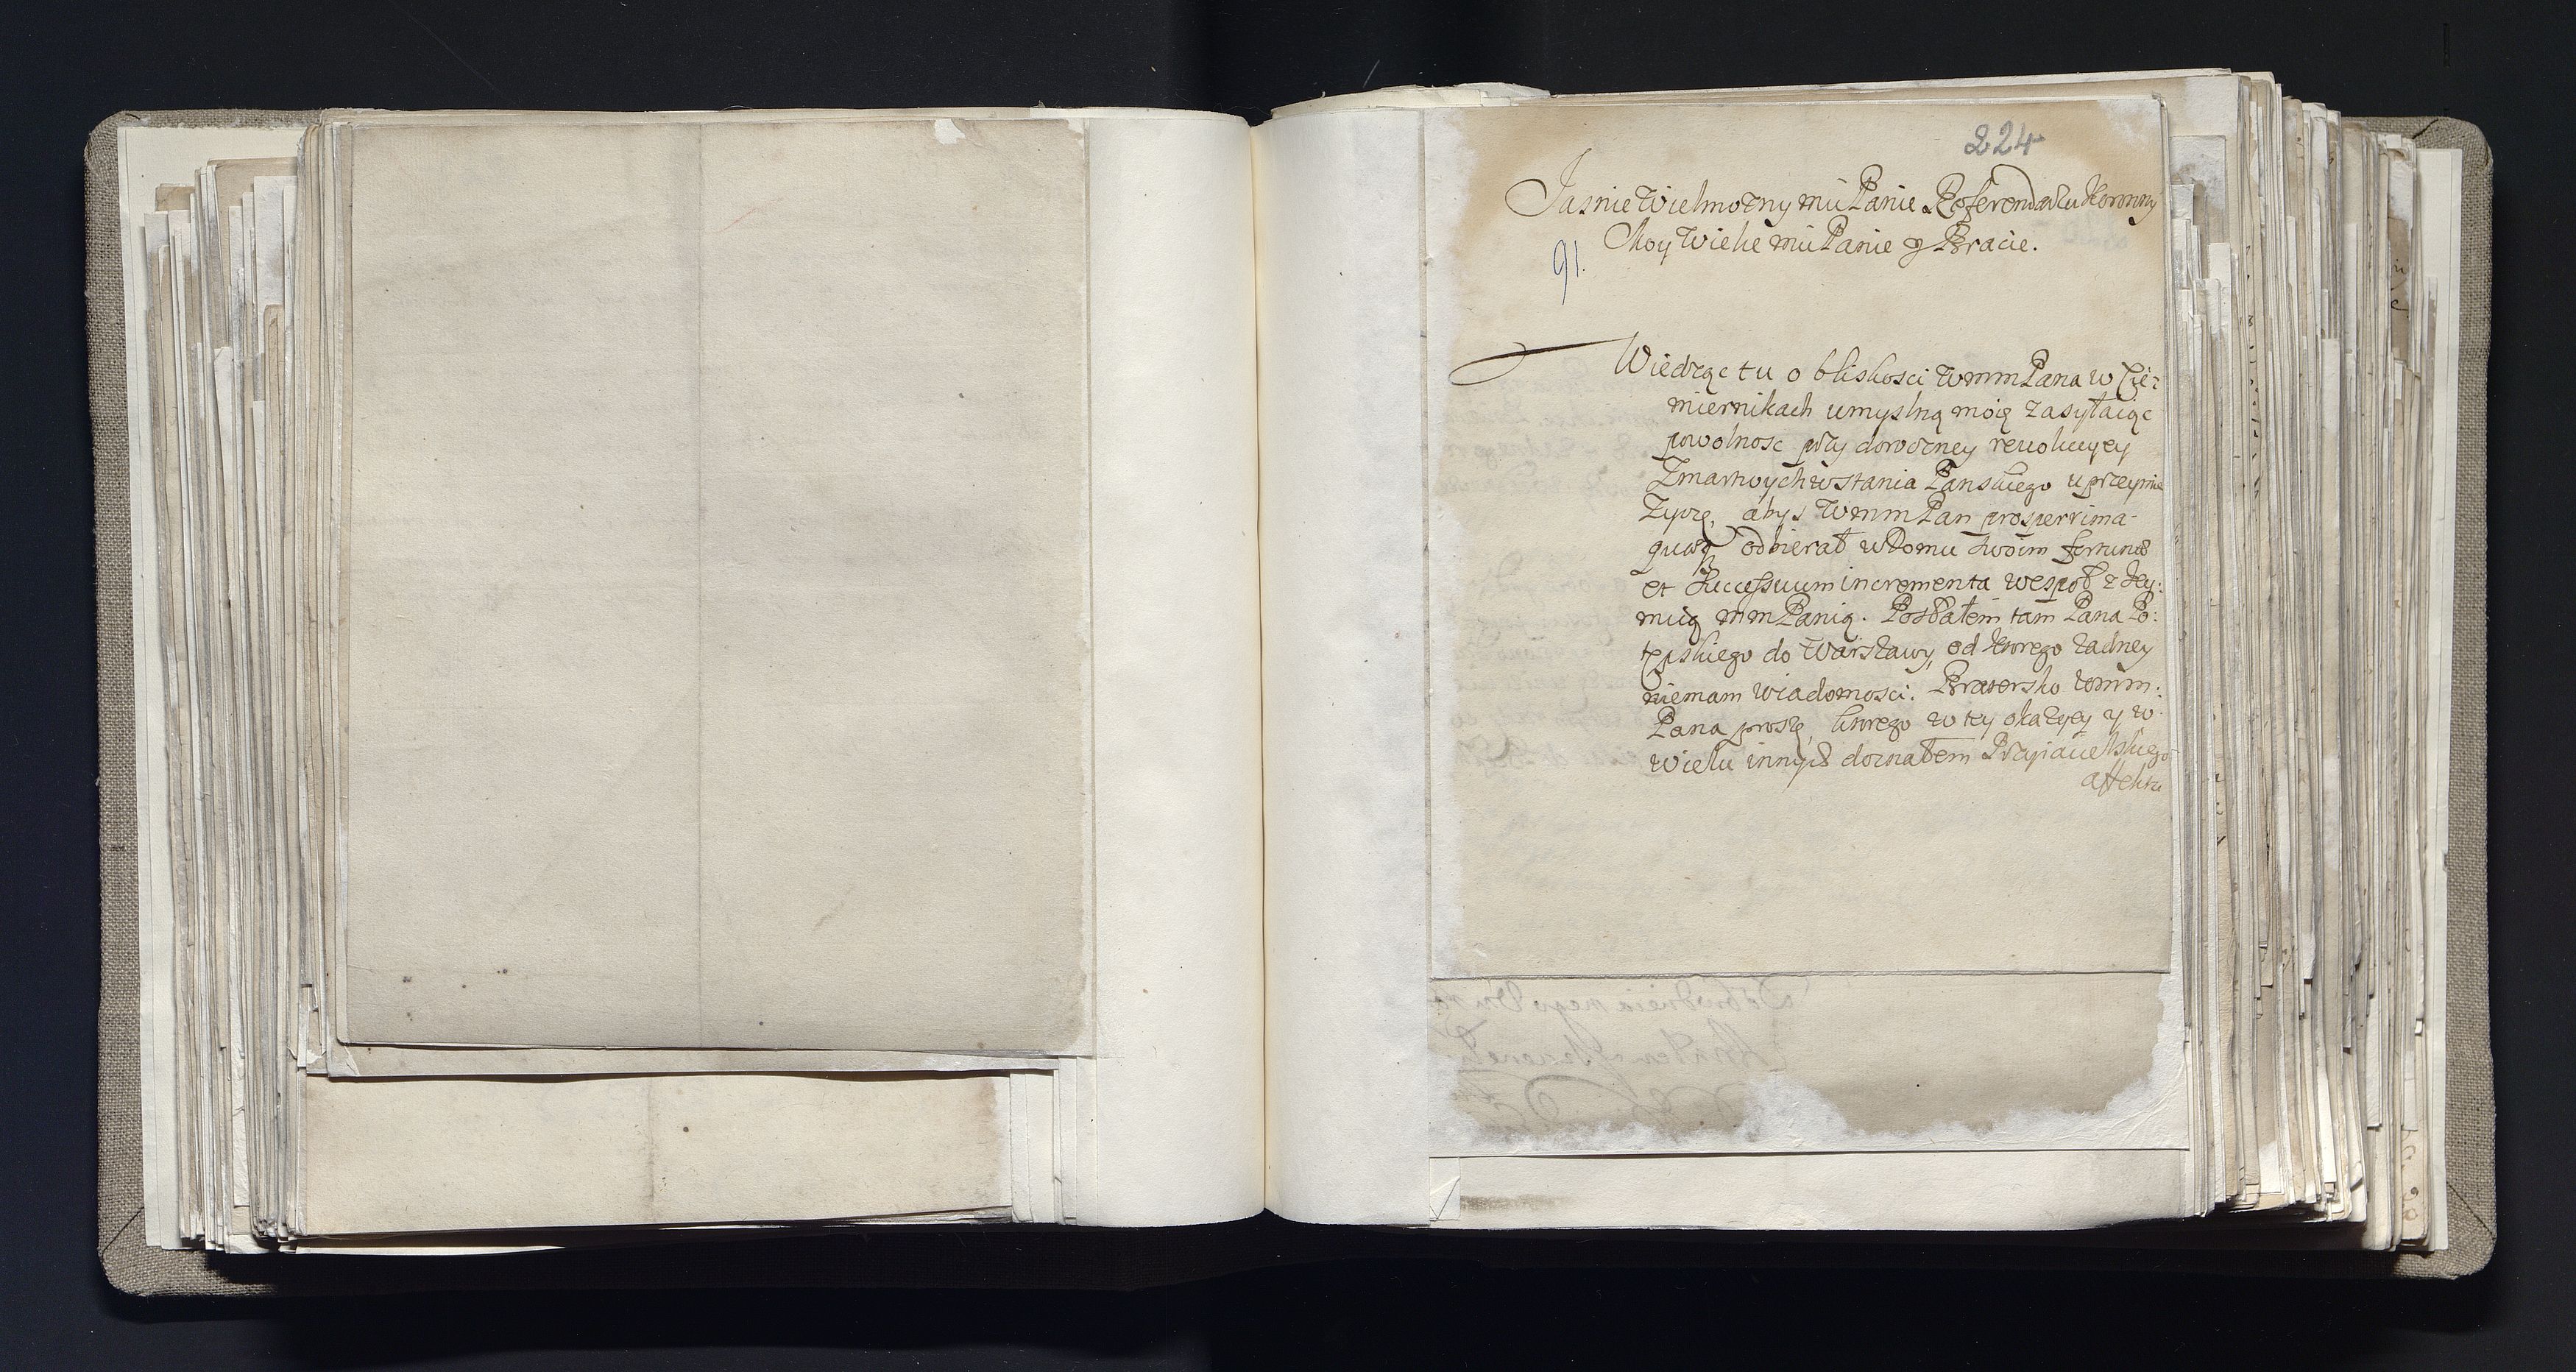 224
Jasnie Wielmozny mći Panie Referendarzu Koronny
Moy Wielce mći Panie y Bracie.
91.
Wiedząc tu o bliskosci WmmPana w Cie=
miernikach umyslną moię zasyłaiąc
powolnosc przy doroczney rewolucyey
Zmartwychwstania Panskiego uprzeymie
Zyczę, abys WmmPan prosperrima
quaeq odbierał w Domu swoim fortunae
et Successuum incrementa wespoł z Jey:
mcią mm Panią. Posłałem tam Pana Po:
tępskiego do Warszawy, od ktorego zadney
niemam wiadomosci. Bratersko Wmm:
Pana proszę, ktorego w tey okazyey y w
wielu innych doznałem Przyiacielskiego
affektu